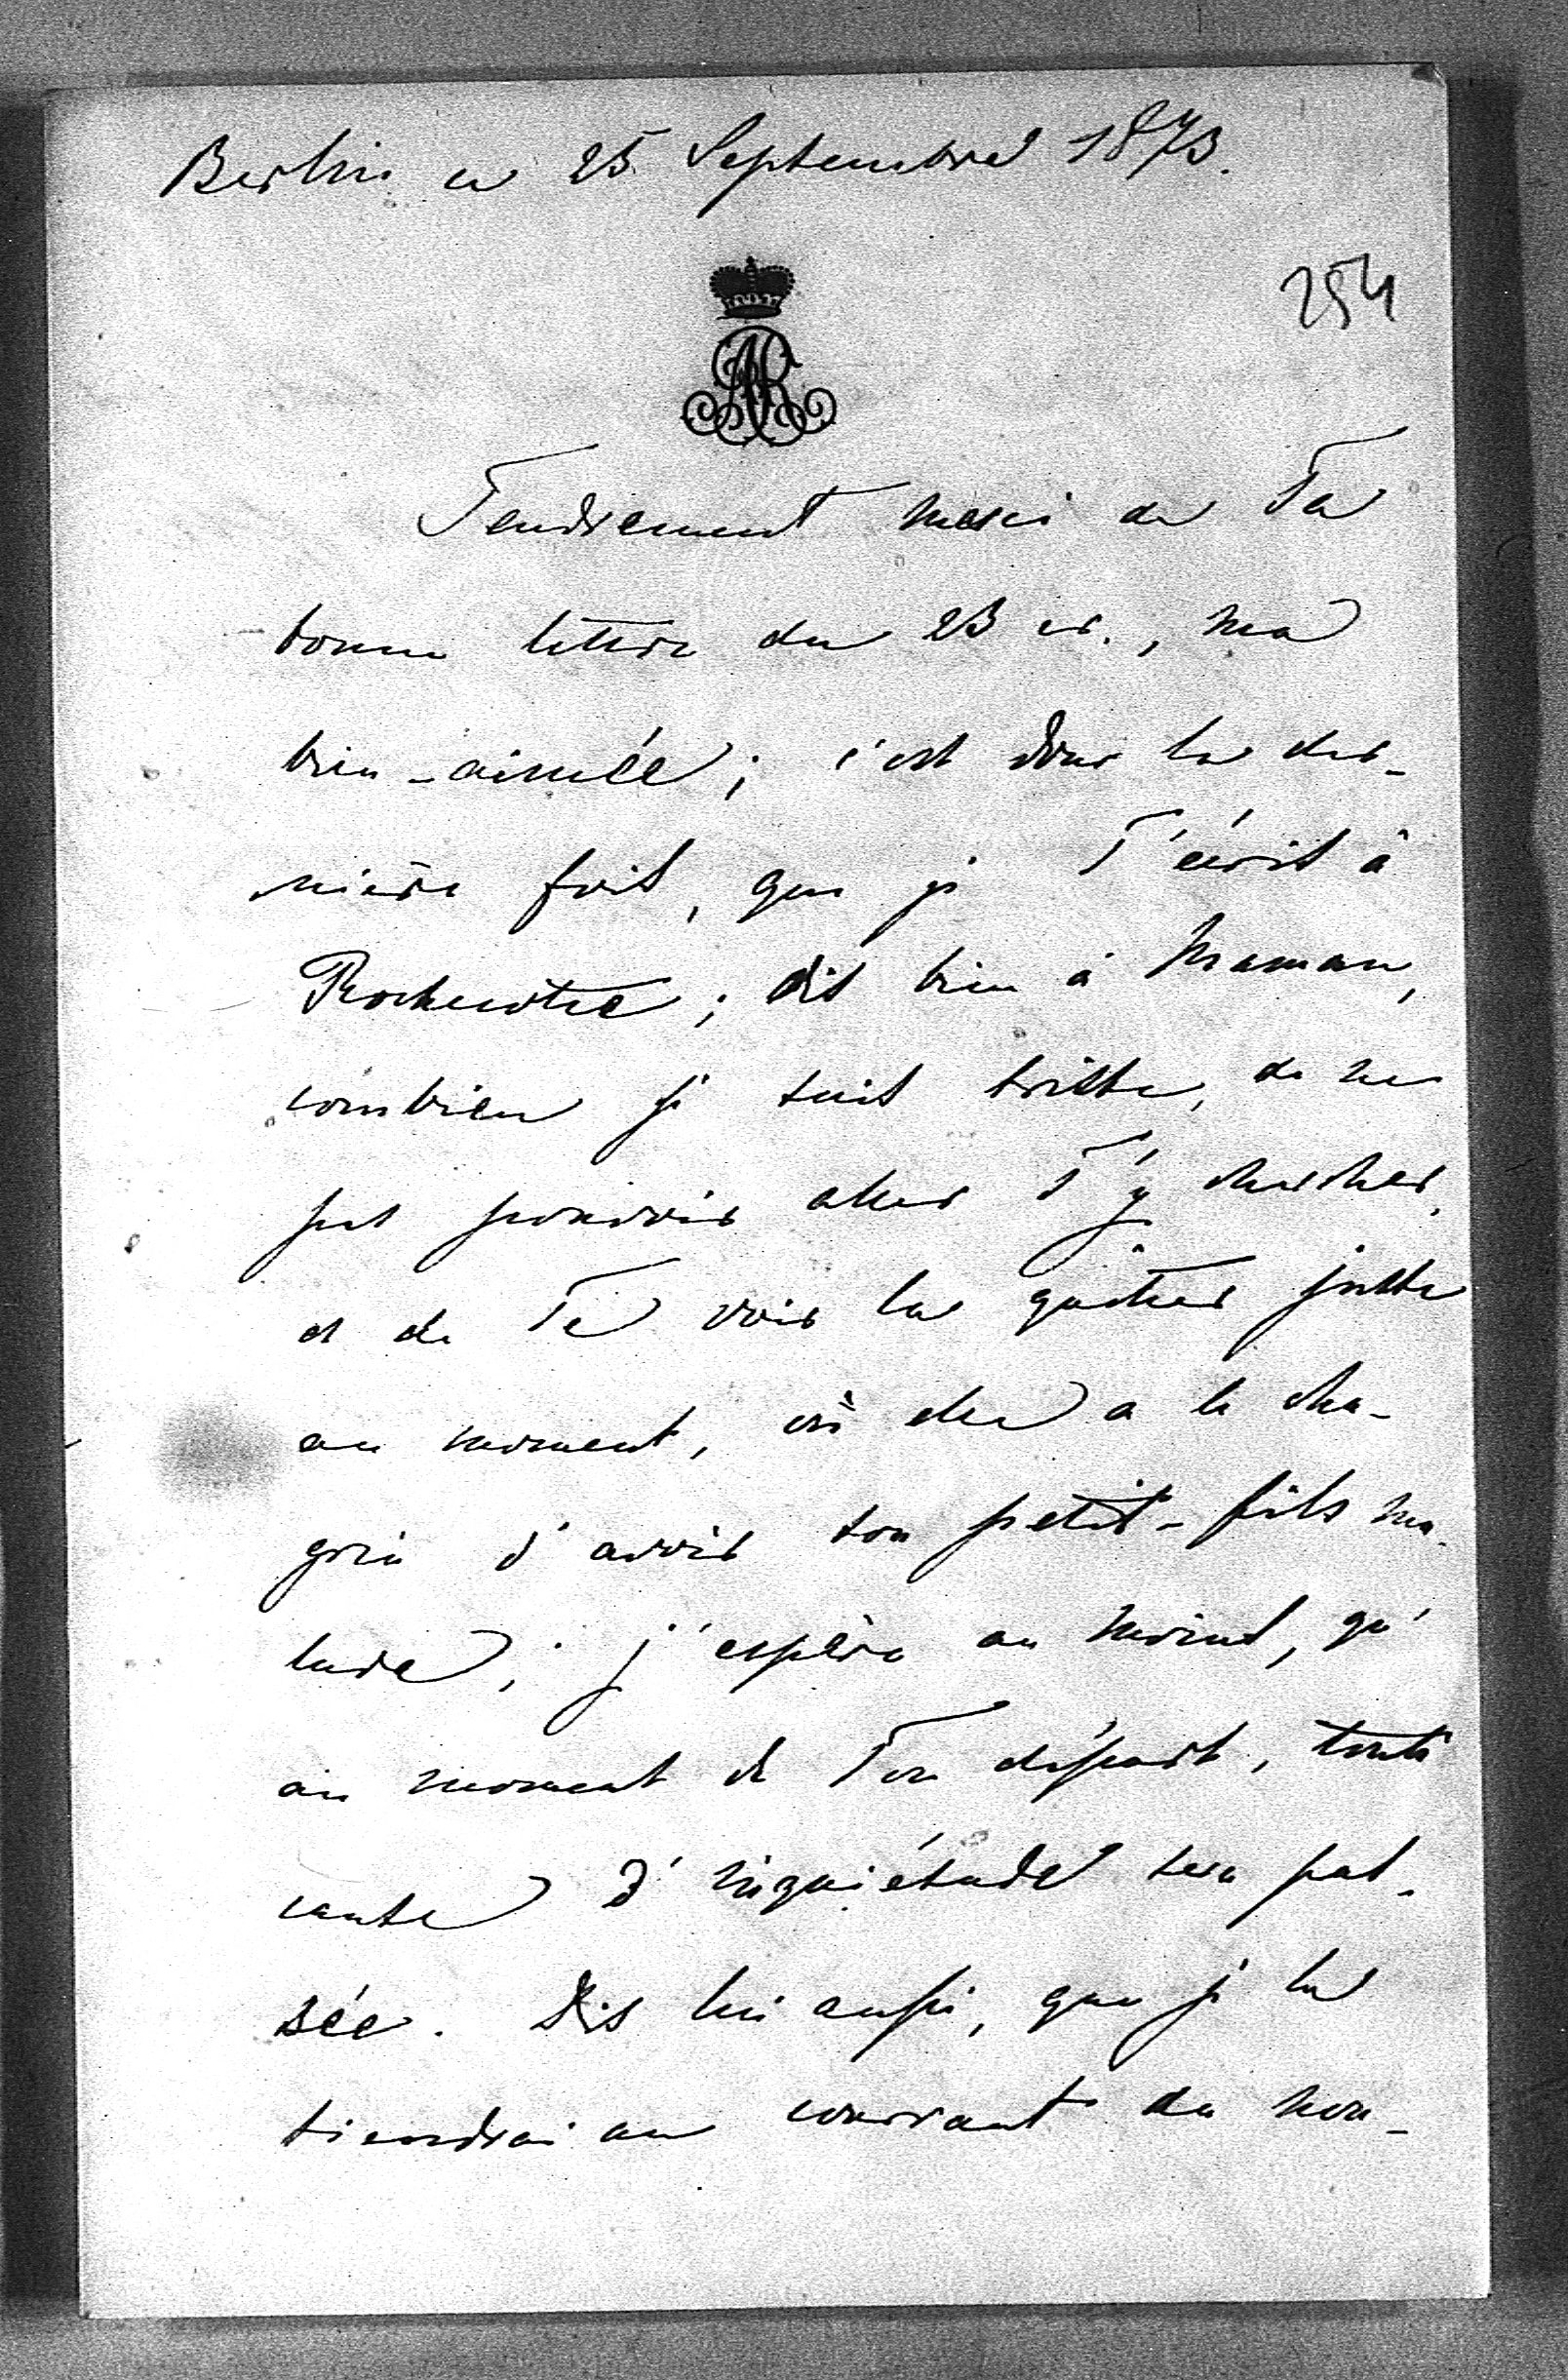 Berlin ce 25 Septembre 1873.
254
AR
Tendrement merci de Ta
bonne lettre du 23 cr., ma
bien-aimée; c'est donc la der-
nière fois, que je T'écris à
Rochecotte; dis bien à Maman,
combien je suis triste, de ne
pas pouvoir aller T'y chercher,
et de Te voir la quitter juste
au moment, où elle a le cha-
grin d'avoir son petit-fils ma-
lade; j'espère au moins, qu'
au moment de Ton départ, toute
cause d'inquiétude sera pas-
sée. Dis lui aussi, que je la
tiendrai au courrant de nou-